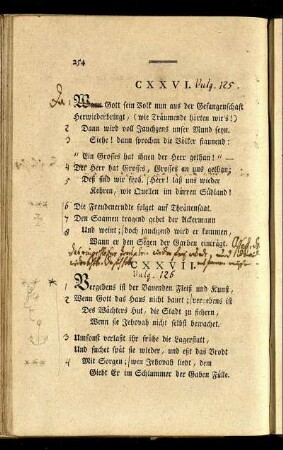 254
CXXVI. Vulg. 125.
1 Wann Gott sein Volk nun aus der Gefangenschaft
Herwiederbringt, (wie Träumende hörten wir's!)
2 Dann wird voll Jauchzens unser Mund seyn.
3 Siehe! dann sprachen die Völker staunend:
"Ein Grosses hat ihnen der Herr gethan!" —
4 Der Herr hat Grosses, Grosses an uns gethan;
5 Deß sind wir froh. Herr! laß uns wieder
Kehren, wie Quellen im dürren Südland!
6 Die Freudenerndte folget auf Thränensaat.
7 Den Saamen tragend gehet der Ackermann
8 Und weint; doch jauchzend wird er kommen,
Wann er den Segen der Garben einträgt.
CXXVII.
Vulg. 126
1 Vergebens ist der Bauenden Fleiß und Kunst,
2 Wenn Gott das Haus nicht bauet; vergebens ist
Des Wächters Hut, die Stadt zu sichern,
Wenn sie Jehovah nicht selbst bewachet.
3 Umsonst verlaßt ihr frühe die Lagerstatt,
Und suchet spät sie wieder, und eßt das Brodt
4 Mit Sorgen; wen Jehovah liebt, dem
Giebt Er im Schlummer der Gaben Fülle.